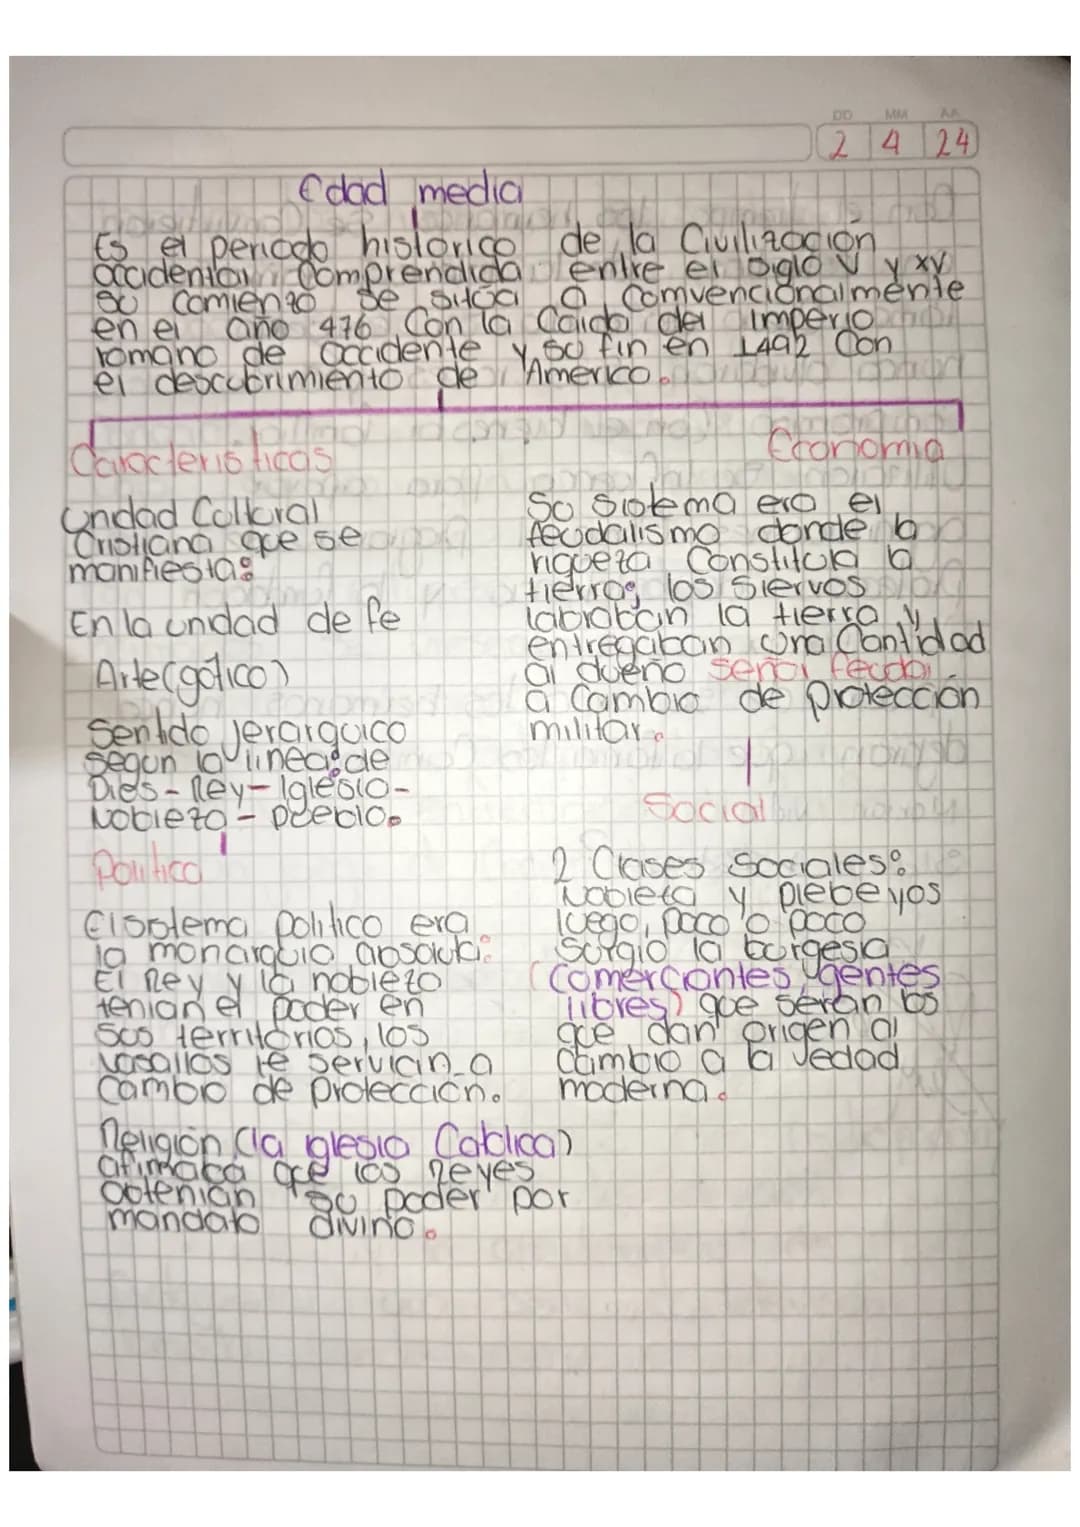 DD MM AA
2 4 24
Edad media
Es el periodo historico de la Civilización
occidental Comprendida entre el siglo V y XV
su comienzo se sitúa a comvencionalmente
en el año 476 Con la Caida del imperio
romano de occidente y su fin en 1492 Con
el descubrimiento de America.
Caracteristicas
unidad Cultural
Cristiana que se
manifiesta:
En la unidad de fe
Arte (gótico)
Sentido jerarquico
segun la linea: de
Dios - Rey - Iglesia -
Nobleza - pueblo.
Politica
El sistema politico era
la monarquia absoluta:
El Rey y la nobleza
tenian el poder en
sus territorios, los
vasallos le servian a
Cambio de protección.
Religión (la iglesia Catolica)
afimaba que los Reyes
obtenian su poder por
mandato divino.
Economia
So sistema era el
feudalismo donde la
riqueza Constituia la
tierra; los siervos
labraban la tierra y
entregaban una Cantidad
al dueño señor feudal
a Cambio de protección
militar.
Social
2 Clases Sociales:
Nobleza y plebeyos
luego, poco o poco
surgio la burgesia
(Comerciantes, gentes
libres) que serán los
que dan origen al
Cambio a la edad
moderna.